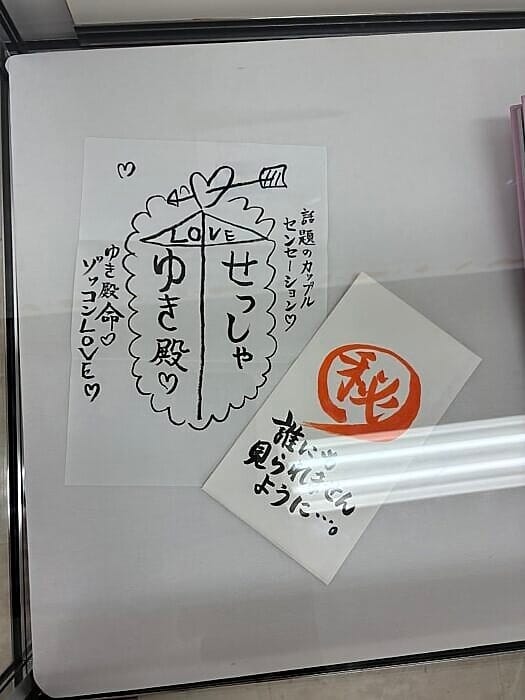 話題のカップル
センセーション♡
LOVE
せっしゃ
ゆき殿♡
ゆき殿命♡
ゾッコンLOVE♡
㊙
誰にも
見られません
ように…。